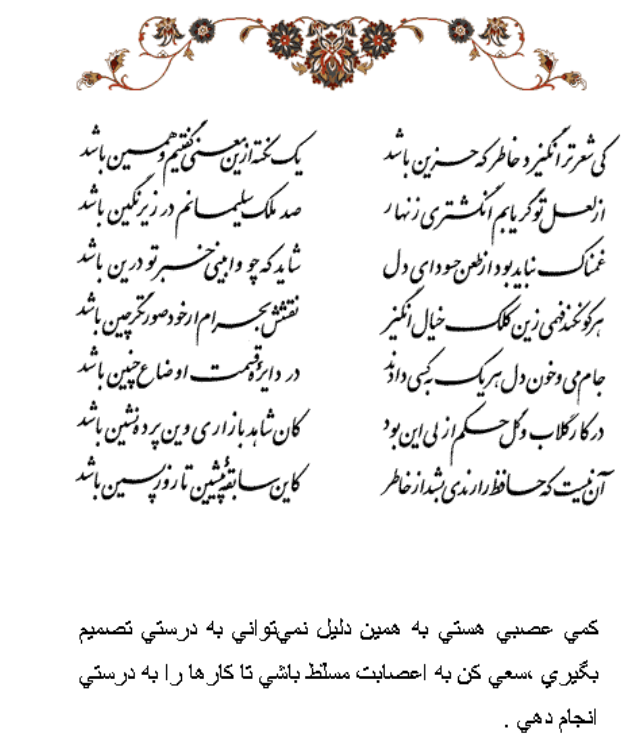 کی شعر تر انگیزد خاطر که حزین باشد یک نکته ازین معنی گفتیم و همین باشد
از لعل تو گر یابم انگشتری زنهار صد ملک سلیمانم در زیر نگین باشد
غمناک نباید بود از طعن حسود ای دل شاید که چو وابینی خیر تو درین باشد
هر کو نکند فهمی زین کلک خیال انگیز نقشش بحرام ار خود صورتگر چین باشد
جام می و خون دل هر یک به کسی دادند در دایرهٔ قیمت اوضاع چنین باشد
در کار گلاب و گل حکم ازلی این بود کان شاهد بازاری وین پرده نشین باشد
آن نیست که حافظ را رندی بشد از خاطر کاین سابقهٔ پیشین تا روز پسین باشد
کمي عصبي هستي به همین دلیل نمي‌تواني به درستي تصمیم
بگیري ،سعي کن به اعصابت مسلّط باشي تا کارها را به درستي
انجام دهي .